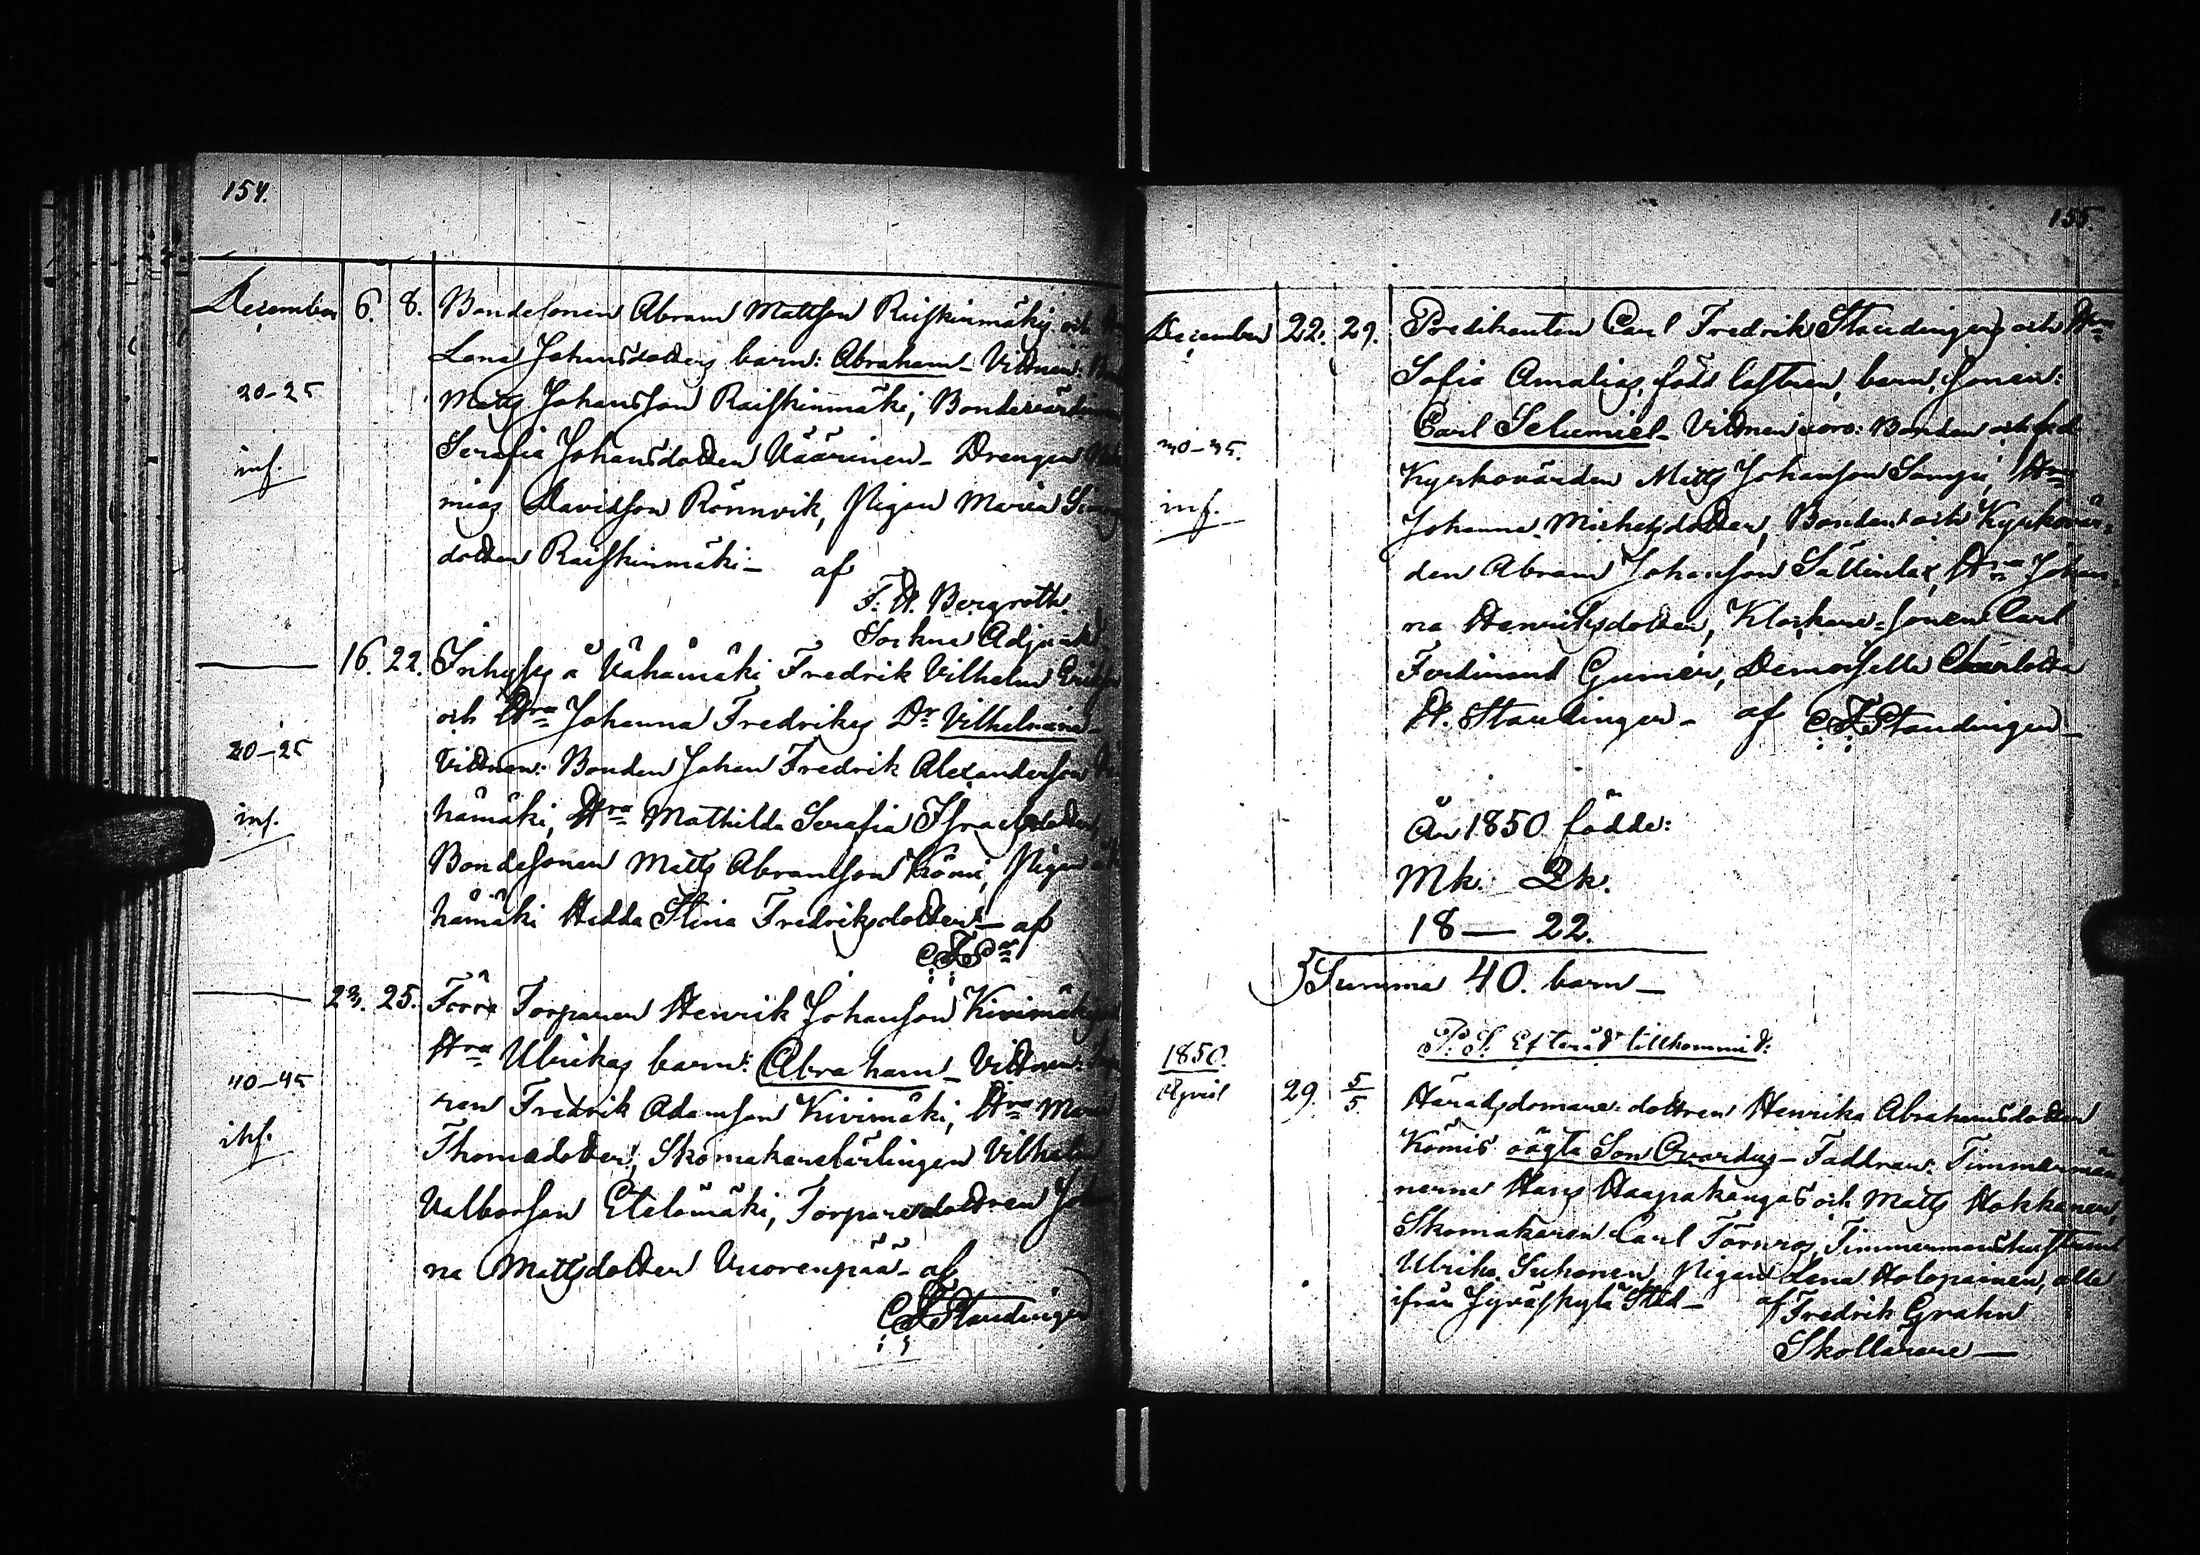 154.
December 6. 8. Bondesonen Abram Mattson Raiskinmäkis och
Lena Johansdotters barn: Abraham - Vittnen:
20-25 Matts Johansson Raiskinmäki, Bondevärdinnan
inf. Serafia Johansdotter Väärinen - Drengen
mias Davidson Rönnvik, Pigan Maria
dotter Raiskinmäki - af
F. H. Bergroth.
Sockne Adjunkt.
16. 22. Inhyses å Vähämäki Fredrik Vilhelm
och Hru Johanna Fredrikas Dr Vilhelmina -
20-25 Vittnen: Bonden Johan Fredrik Alexanderson
inf. hämäki, Hru Mathilda Serafia Israelsdotter,
Bondesonen Matts Abramson Kömi, Pigan
hämäki Hedda Stina Fredriksdotter - af
23. 25. Förre Torparen Henrik Johanson Kivimäkis
Hru Ulrikas barn: Abraham - Vittnen:
40-45 ren Fredrik Adamson Kivimäki, Hru
inf. Thomasdotter, Skomakarelärlingen Vilhelm
Valborson Etelämäki, Torparedottren
na Mattsdotter Vuorenpää - af
C F Staudinger
155.
December 22. 29. Predikanten Carl Fredrik Staudingers och Hru
Sofia Amalias, född Castren, barn, sonen:
Carl Selumiel - Vittnen voro: Bonden och f.d.
30-35. Kyrkovärden Matts Johanson Sampi, Hru
inf. Johanna Michelsdotter, Bonden och Kyrkovär-
den Abram Johanson Sällinlax, Hru Johan-
na Henriksdotter, Klockare-sonen Carl
Ferdinand Gumér, Demoiselle Charlotta
H. Staudinger - af C F Staudinger -
År 1850 födde:
Mk. Qk.
18 - 22.
Summa 40. barn -
P. S. Efteråt tillkommit:
1850.
April 29. 5/5. Häradsdomare-dottren Henrika Abrahamsdotter
Kömis oägta Son Qvardus - Faddrar: Timmermän-
nerna Hans Haapakangas och Matts Hokkanen,
Skomakaren Carl Törnros, Timmermanshustrun
Ulrika Suhonen, Pigan Lena Holopainen, alla
ifrån Jyväskylä Stad - af Fredrik Grahn
Skollärare -